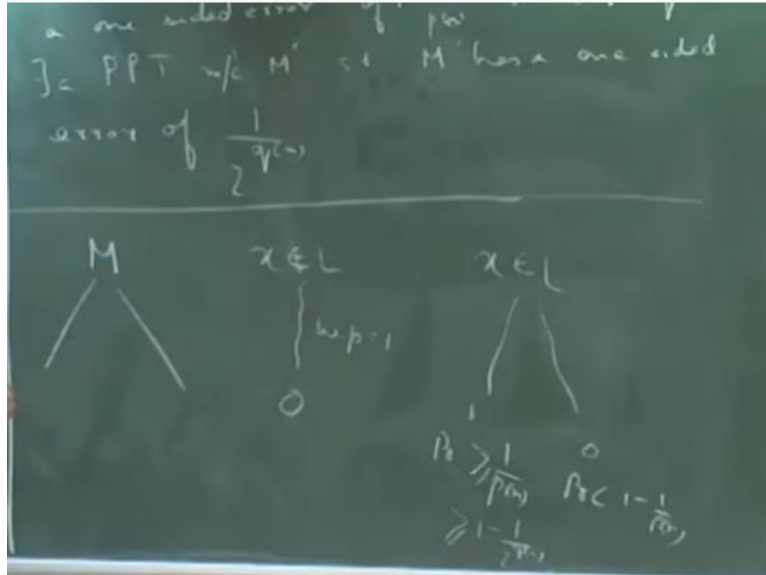 a one sided error of p(n)
∃ a PPT m/c M' st M' has a one sided
error of 1/2^q(n)
M
x ∉ L
w.p = 1
0
x ∈ L
1
Pr ≥ 1/p(n)
≥ 1 - 1/2^q(n)
0
Pr < 1 - 1/p(n)